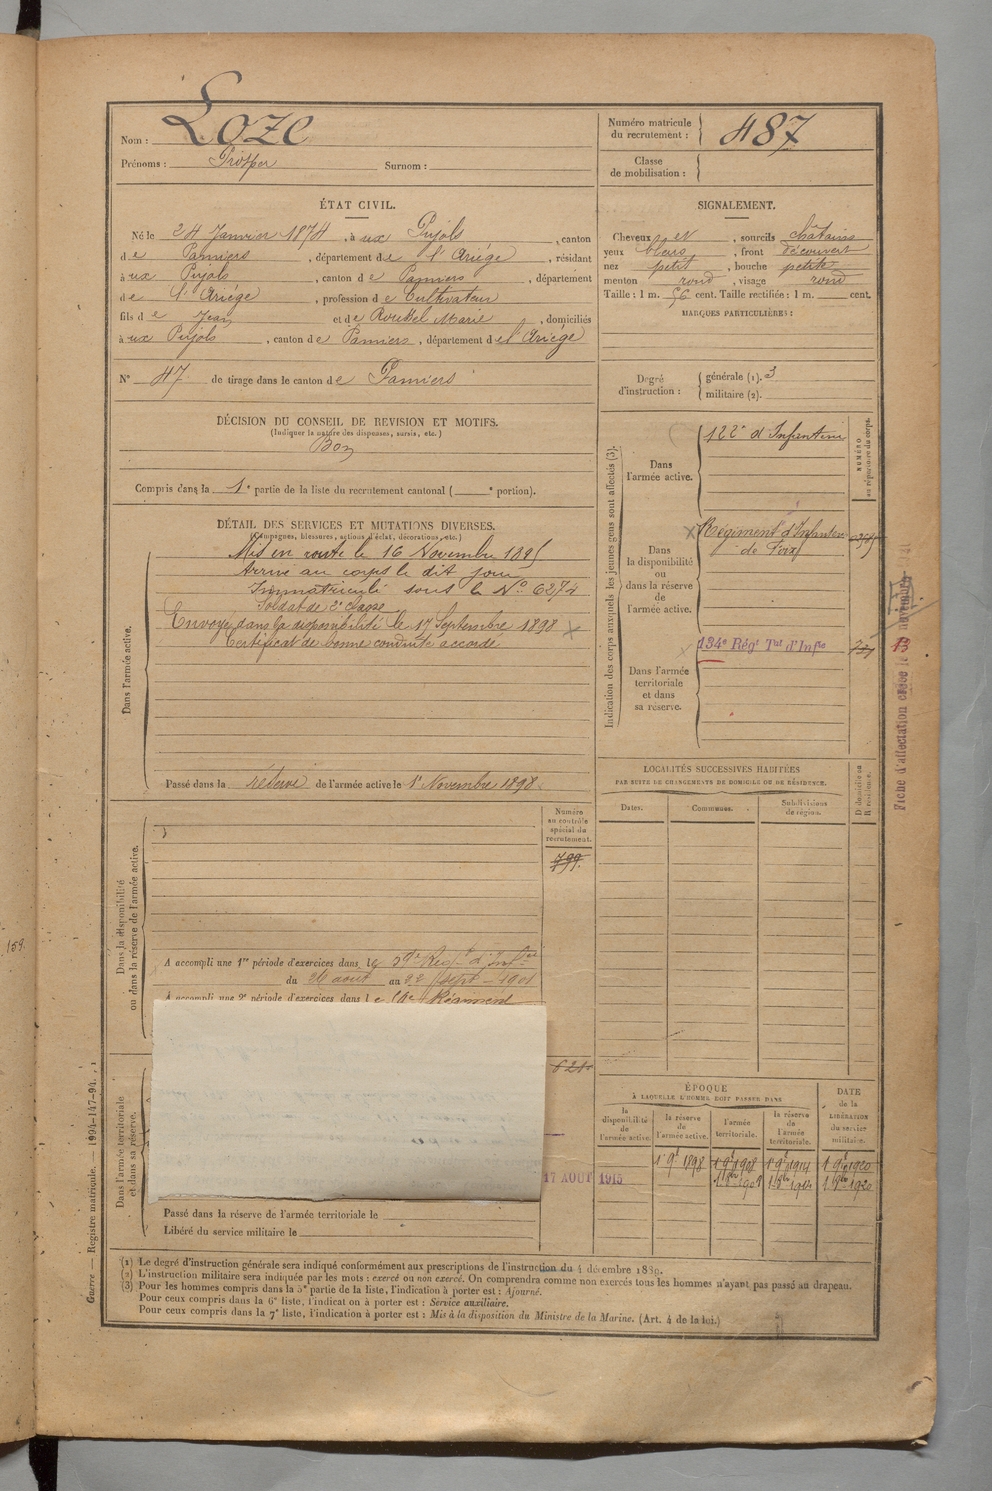 Nom : Loze
Prénoms : Prosper Surnom :
Numéro matricule du recrutement : 487
Classe de mobilisation :
ÉTAT CIVIL.
Né le 24 Janvier 1874, à ux Pujols, canton
de Pamiers, département de l'Ariége, résidant
à ux Pujols, canton de Pamiers, département
de l'Ariége, profession de Cultivateur
fils de Jean et de Roussel Marie, domiciliés
à ux Pujols, canton de Pamiers, département de l'Ariége
N° 47 de tirage dans le canton de Pamiers
DÉCISION DU CONSEIL DE REVISION ET MOTIFS.
(Indiquer la nature des dispenses, sursis, etc.)
Bon
Compris dans la 1e partie de la liste du recrutement cantonal ( e portion).
DÉTAIL DES SERVICES ET MUTATIONS DIVERSES.
(Campagnes, blessures, actions d'éclat, décorations, etc.)
Dans l'armée active.
Mis en route le 16 Novembre 1895
Arrivé au corps le dit jour
Immatriculé sous le N° 6274
Soldat de 2e classe
Envoyé dans la disponibilité le 17 Septembre 1898
Certificat de bonne conduite accordé
Passé dans la réserve de l'armée active le 1er Novembre 1898
Dans la disponibilité
ou dans la réserve de l'armée active.
Numéro
au contrôle
spécial du
recrutement.
799
A accompli une 1re période d'exercices dans le 59e Régt d'Infie
du 26 aout au 22 sept 1901
A accompli une 2e période d'exercices dans le Régiment
Dans l'armée territoriale
et dans sa réserve.
621
17 AOUT 1915
Passé dans la réserve de l'armée territoriale le
Libéré du service militaire le
SIGNALEMENT.
Cheveux et, sourcils châtains
yeux bleus, front découvert
nez petit, bouche petite
menton rond, visage rond
Taille : 1 m. 56 cent. Taille rectifiée : 1 m. cent.
MARQUES PARTICULIÈRES :
Degré d'instruction : générale (1). 3
militaire (2).
Indication des corps auxquels les jeunes gens sont affectés (3).
NUMÉRO
au répertoire du corps.
Dans
l'armée active.
122e d'Infanterie
Dans
la disponibilité
ou
dans la réserve
de
l'armée active.
Régiment d'Infanterie
de Foix
Dans l'armée
territoriale
et dans
sa réserve.
134e Régt Tal d'Infie
Fiche d'affectation créée le 13 novembre
LOCALITÉS SUCCESSIVES HABITÉES
PAR SUITE DE CHANGEMENTS DE DOMICILE OU DE RÉSIDENCE.
Dates. Communes. Subdivisions de région. D domicile ou R résidence.
ÉPOQUE
À LAQUELLE L'HOMME DOIT PASSER DANS
DATE
de la
LIBÉRATION
du service
militaire.
la disponibilité de l'armée active. la réserve de l'armée active. l'armée territoriale. la réserve de l'armée territoriale.
1er 9bre 1898 1er 9bre 1908 1er 9bre 1914 1er 9bre 1920
(1) Le degré d'instruction générale sera indiqué conformément aux prescriptions de l'instruction du 4 décembre 1889.
(2) L'instruction militaire sera indiquée par les mots : exercé ou non exercé. On comprendra comme non exercés tous les hommes n'ayant pas passé au drapeau.
(3) Pour les hommes compris dans la 5e partie de la liste, l'indication à porter est : Ajourné.
Pour ceux compris dans la 6e liste, l'indication à porter est : Service auxiliaire.
Pour ceux compris dans la 7e liste, l'indication à porter est : Mis à la disposition du Ministre de la Marine. (Art. 4 de la loi.)
Guerre. — Registre matricule. — 1994-147-94.
159.